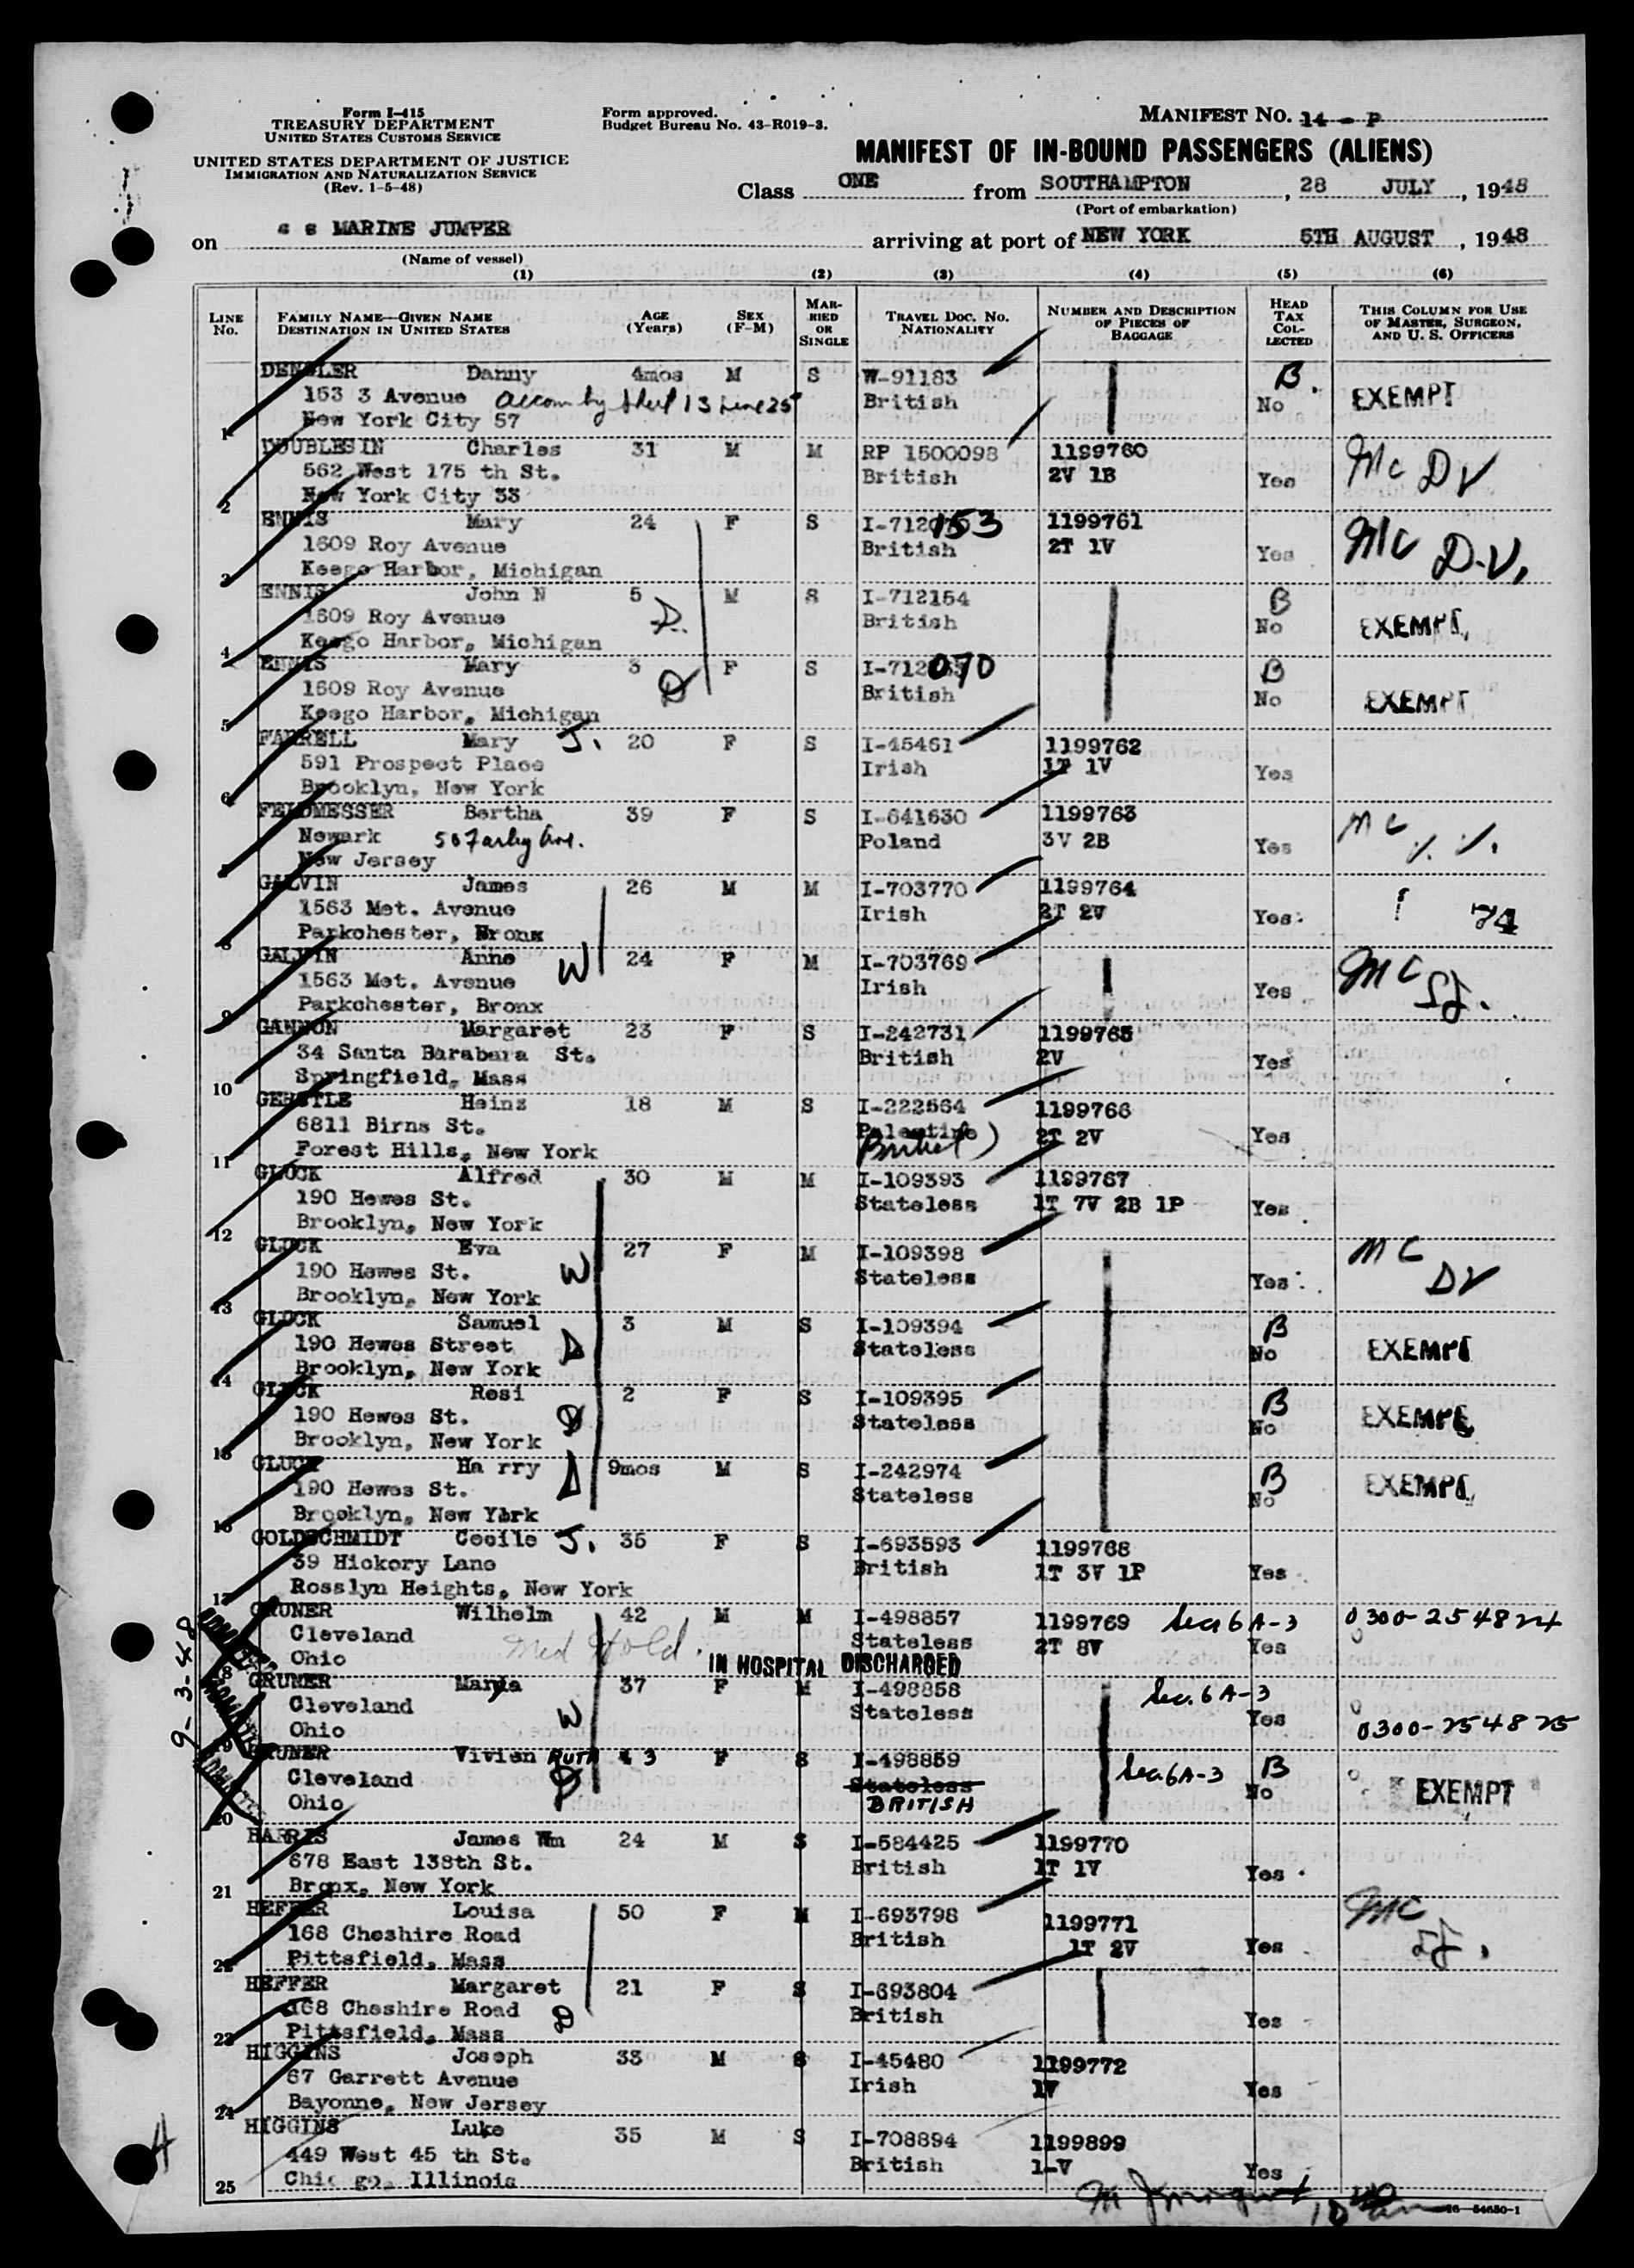 Form I-415
TREASURY DEPARTMENT
UNITED STATES CUSTOMS SERVICE
UNITED STATES DEPARTMENT OF JUSTICE
IMMIGRATION AND NATURALIZATION SERVICE
(Rev. 1-5-48)
Form approved.
Budget Bureau No. 43-R019-3.
MANIFEST NO. 14 - P
MANIFEST OF IN-BOUND PASSENGERS (ALIENS)
Class ONE from SOUTHAMPTON, 28 JULY, 1948
(Port of embarkation)
on s s MARINE JUMPER arriving at port of NEW YORK 5TH AUGUST, 1948
(Name of vessel)
(1) (2) (3) (4) (5) (6)
LINE No. FAMILY NAME—GIVEN NAME DESTINATION IN UNITED STATES AGE (Years) SEX (F-M) MARRIED OR SINGLE TRAVEL DOC. NO. NATIONALITY NUMBER AND DESCRIPTION OF PIECES OF BAGGAGE HEAD TAX COLLECTED THIS COLUMN FOR USE OF MASTER, SURGEON, AND U. S. OFFICERS
DENGLER Danny 4mos M S W-91183 B.
153 3 Avenue accom by sheet 13 line 25 British No EXEMPT
1 New York City 57
DOUBLESIN Charles 31 M M RP 1500098 1199760 Mc DV
562 West 175 th St. British 2V 1B Yes
2 New York City 33
ENNIS Mary 24 F S I-712 153 1199761 Mc D.V.
1609 Roy Avenue British 2T 1V Yes
3 Keego Harbor, Michigan
ENNIS John N 5 M S I-712154 B
1609 Roy Avenue D. British No EXEMPT
4 Keego Harbor, Michigan
ENNIS Mary 3 F S I-712 070 B
1609 Roy Avenue D British No EXEMPT
5 Keego Harbor, Michigan
FARRELL Mary J. 20 F S I-45461 1199762
591 Prospect Place Irish 1T 1V Yes
6 Brooklyn, New York
FELDMESSER Bertha 39 F S I-641630 1199763 MC
Newark 50 Farley Ave. Poland 3V 2B Yes
7 New Jersey
GALVIN James 26 M M I-703770 1199764
1563 Met. Avenue Irish 2T 2V Yes 74
8 Parkchester, Bronx
GALVIN Anne 24 F M I-703769 MC
1563 Met. Avenue W Irish Yes
9 Parkchester, Bronx
GANNON Margaret 23 F S I-242731 1199765
34 Santa Barabara St. British 2V Yes
10 Springfield, Mass
GERSTLE Heinz 18 M S I-222564 1199766
6811 Birns St. Palestine 2T 2V Yes
11 Forest Hills, New York British)
GLUCK Alfred 30 M M I-109393 1199767
190 Hewes St. Stateless 1T 7V 2B 1P Yes
12 Brooklyn, New York
GLUCK Eva 27 F M I-109398 MC
190 Hewes St. W Stateless Yes DV
13 Brooklyn, New York
GLUCK Samuel 3 M S I-109394 B
190 Hewes Street D Stateless No EXEMPT
14 Brooklyn, New York
GLUCK Resi 2 F S I-109395 B
190 Hewes St. D Stateless No EXEMPT
15 Brooklyn, New York
GLUCK Ha rry 9mos M S I-242974 B
190 Hewes St. D Stateless No EXEMPT
16 Brooklyn, New York
GOLDSCHMIDT Cecile J. 35 F S I-693593 1199768
39 Hickory Lane British 1T 3V 1P Yes
17 Rosslyn Heights, New York
GRUNER Wilhelm 42 M M I-498857 1199769 Sec. 6A-3 0300-254824
Cleveland Stateless 2T 8V Yes
18 Ohio Med Hold. IN HOSPITAL DISCHARGED
9-3-48
GRUNER Marya 37 F M I-498858 Sec. 6A-3
Cleveland W Stateless Yes
19 Ohio 0300-254825
GRUNER Vivien RUTH 3 F S I-498859 Sec. 6A-3 B
Cleveland D Stateless No EXEMPT
20 Ohio BRITISH
HARRIS James Wm 24 M S I-584425 1199770
678 East 138th St. British 1T 1V Yes
21 Bronx, New York
HEFFER Louisa 50 F M I-693798 1199771 MC
168 Cheshire Road British 1T 2V Yes
22 Pittsfield, Mass
HEFFER Margaret 21 F S I-693804
168 Cheshire Road D British Yes
23 Pittsfield, Mass
HIGGINS Joseph 33 M S I-45480 1199772
67 Garrett Avenue Irish 1V Yes
24 Bayonne, New Jersey
HIGGINS Luke 35 M S I-708894 1199899
449 West 45 th St. British 1-V Yes
25 Chic go, Illinois
16-54650-1